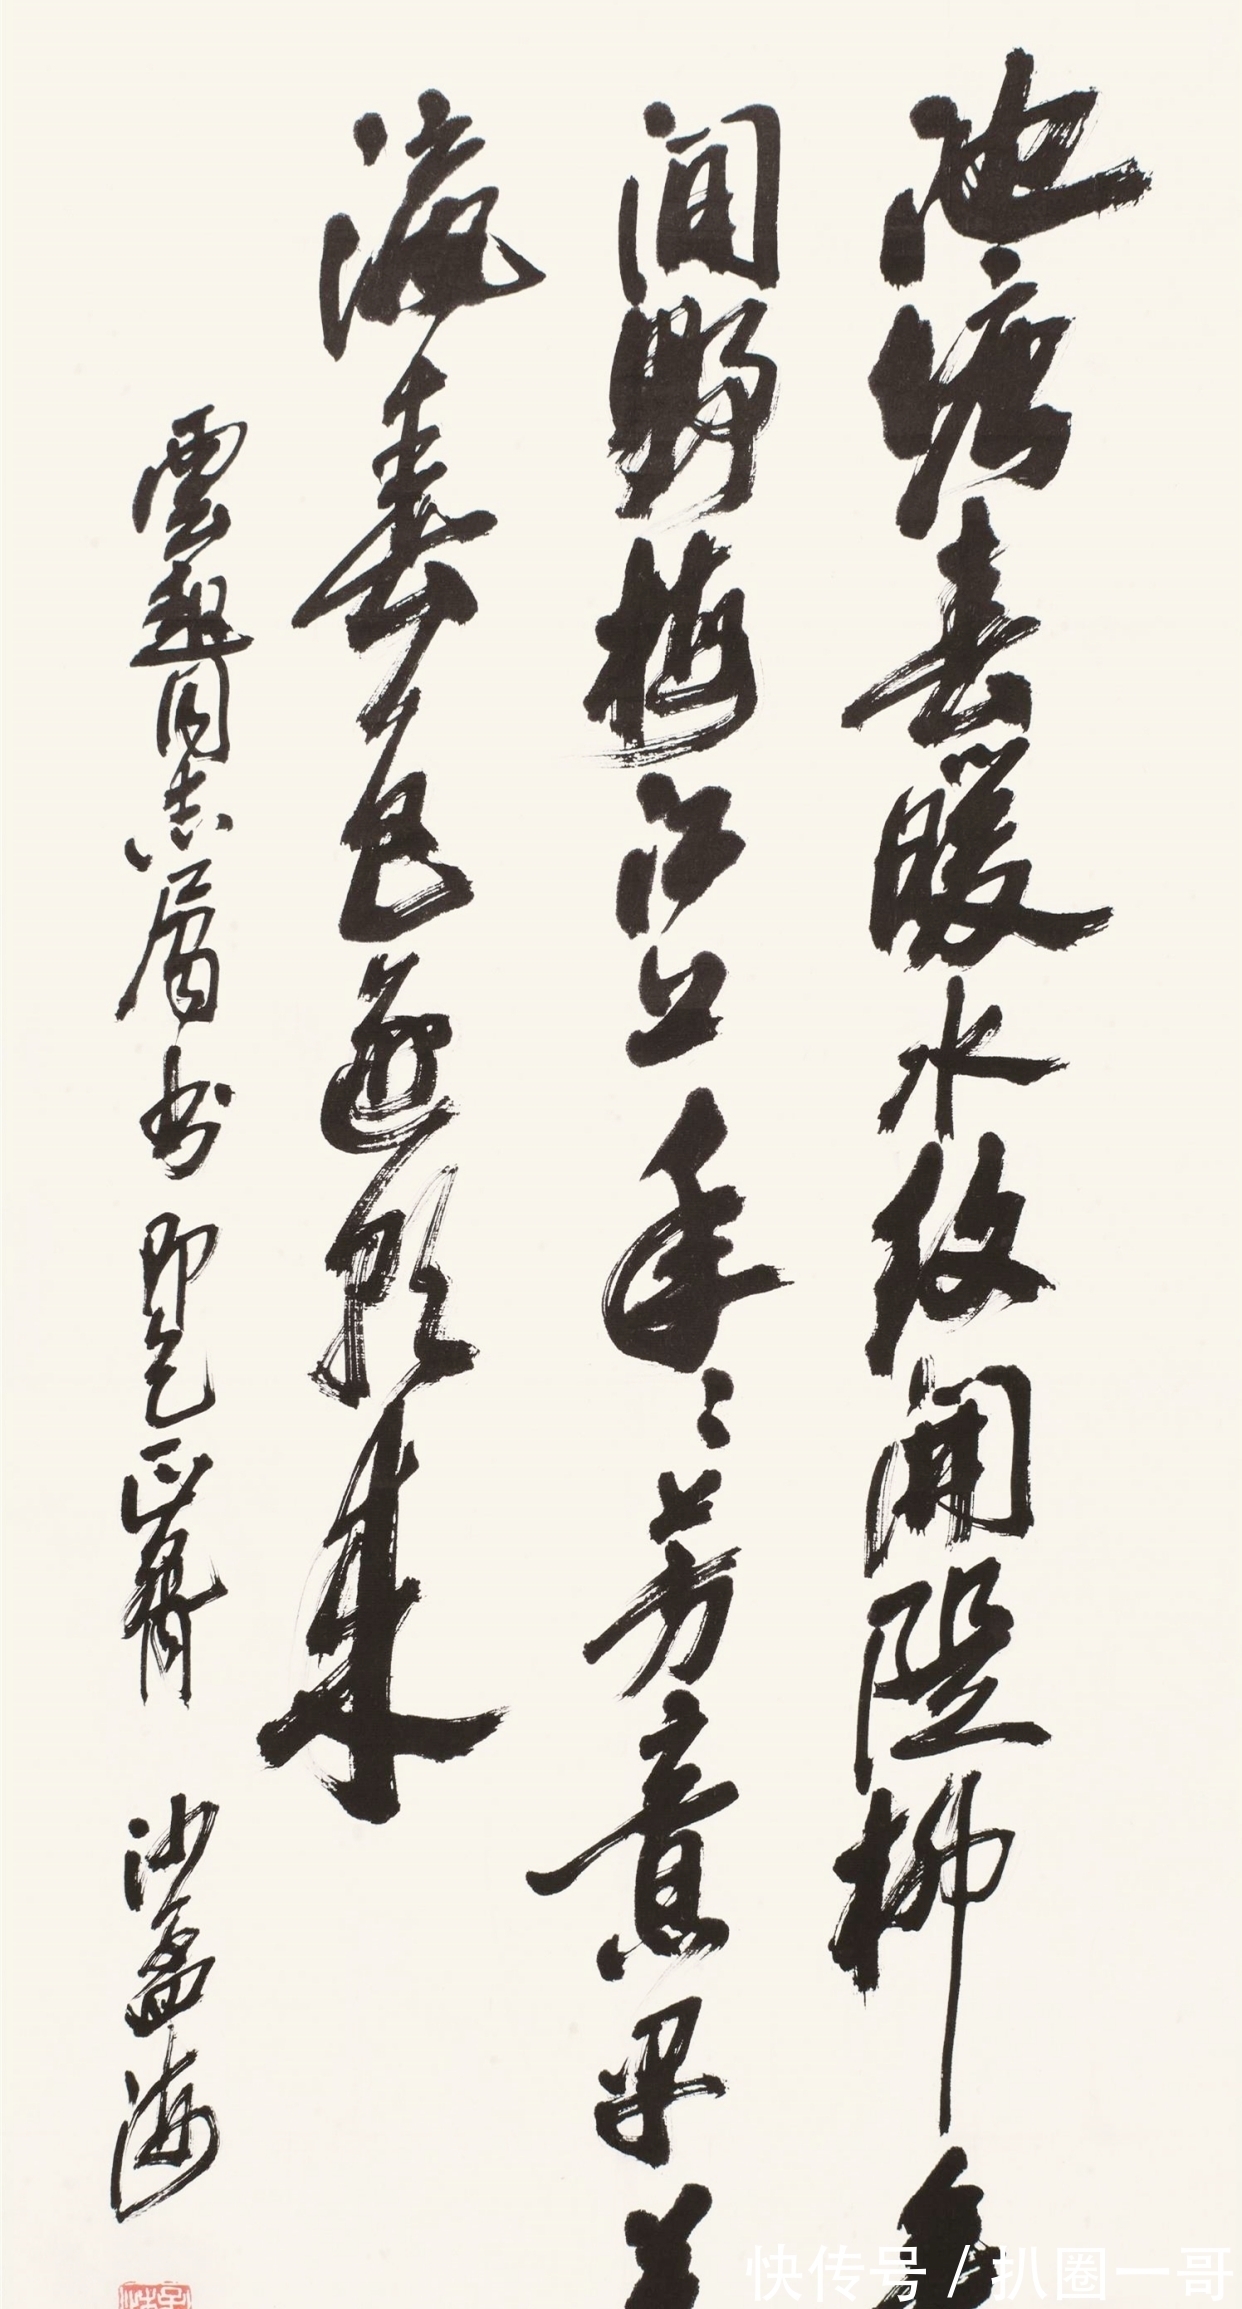 池塘春暖水紋開隄柳
間野梅江上年〻芳意早
瀛春色逐潮来
雲 同志属书 即乞正 沙孟海
快传号 / 扒圈一哥